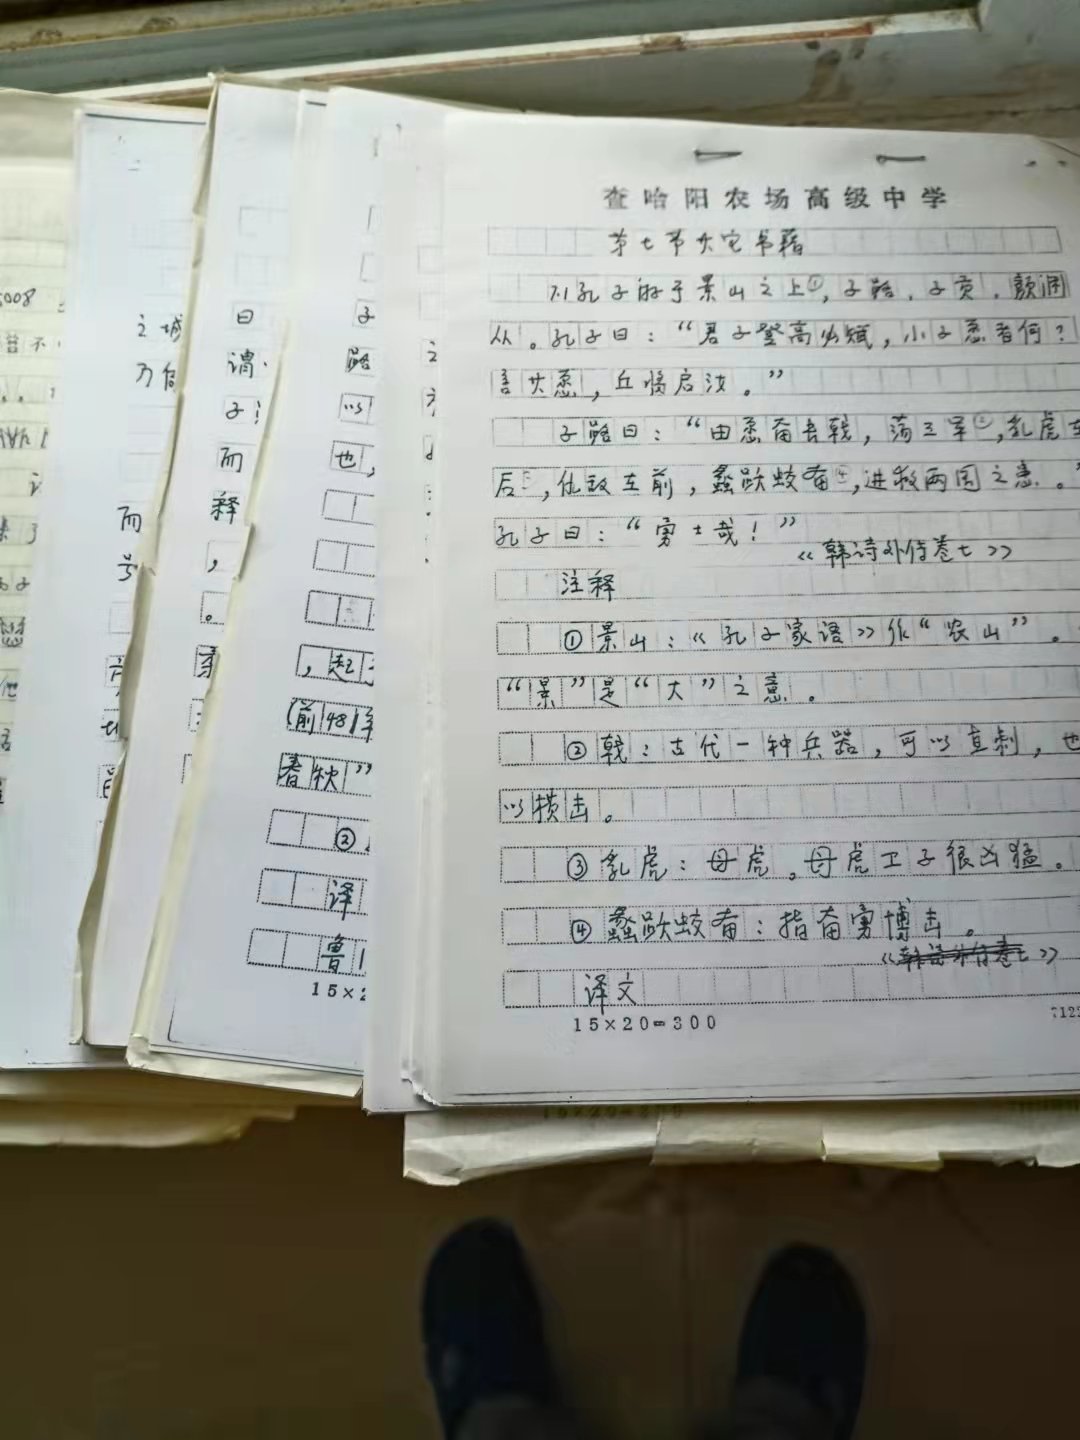 查哈阳农场高级中学
第七节其它书籍
7.1孔子游于景山之上①,子路,子贡,颜渊
从。孔子曰:“君子登高必赋,小子愿者何?
言其愿,丘将启汝。”
子路曰:“由愿奋吾戟,荡三军②,乳虎在
后③,仇敌在前,蠡跃蛟奋④,进救两国之患。”
孔子曰:“勇士哉!”
《韩诗外传卷七》
注释
①景山:《孔子家语》作“农山”。
“景”是“大”之意。
②戟:古代一种兵器,可以直刺,也
以横击。
③乳虎:母虎。母虎卫子很凶猛。
④蠡跃蛟奋:指奋勇博击。
《韩诗外传卷七》
译文
15×20=300
7122
之城
乃
而
号
曰
谓
子!
而
释
,
。
子
路
以
也,
,起
(前481年
春秋”
②
译
鲁
15×2
15×20=300